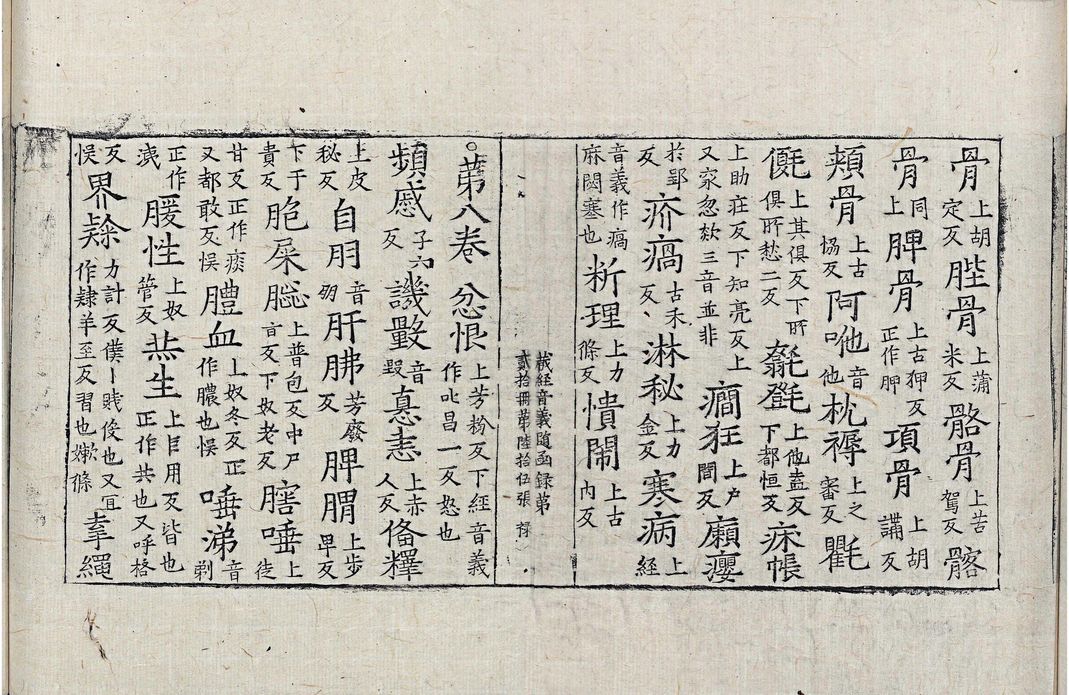 骨上胡定反䏶骨上蒲米反髂骨上苦駕反髂
骨上同脾骨上古狎反正作胛項骨上胡講反
頰骨上古協反阿吔音他枕褥上之審反氍
㲣上其俱反下所俱所愁二反㲪㲪上他盍反下都恒反床帳
上助莊反下知亮反上又家忽欻三音並非癎狂上戸間反廮
於郢反疥瘑古禾反淋秘上力金反寒病上經
音義作瘑麻閡塞也斷理上力條反憒閙上古內反
藏経音義隨函録第
貳拾冊第陸拾伍張 禄
○第八卷 忿恨上芳粉反下經音義作叱昌一反怒也
頻慼子六反譏毀音毀恚恚上赤人反俻釋
上皮秘反自刖音刎肝胏芳廢反脾胃上步卑反
下于貴反胞屎𦞤上普包反中尸亩反下奴老反膪唾上徒
甘反正作痰又都敢反悮膿血上奴冬反正作膿也悮唾涕音剃
正作洟煖性上奴管反共生上巨用反皆也正作共也又呼格
反悮界隸力計反僕丨賎㑓也又宜作隸羊至反習也嫰條牽繩